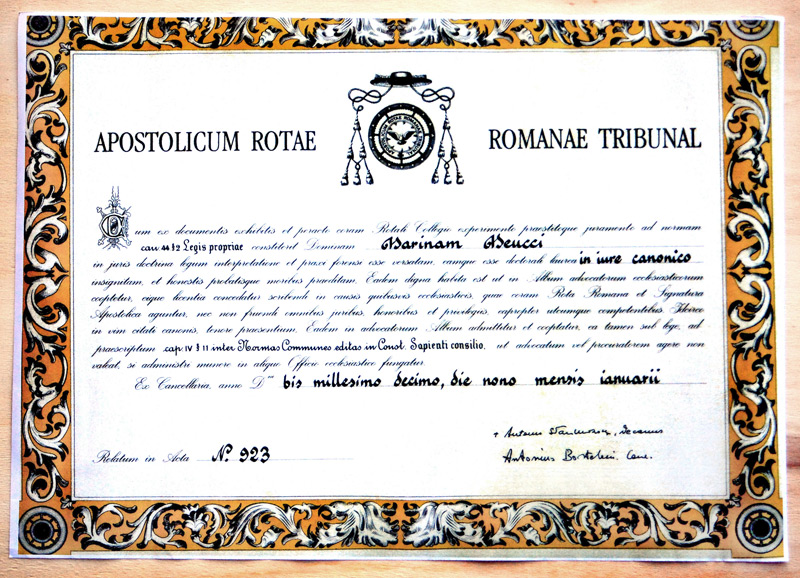 APOSTOLICUM ROTAE ROMANAE TRIBUNAL
Cum ex documentis exhibitis et peracto coram Rotali Collegio experimento praestitoque juramento ad normam
can 44 § 2 Legis propriae constiterit Dominam Marinam Meucci
in juris doctrina legum interpretatione et praxi forensi esse versatam, eamque esse doctorali laurea in iure canonico
insignitam, et honestis probatisque moribus praeditam, Eadem digna habita est ut in Album advocatorum ecclesiasticorum
cooptetur, eique licentia concedatur scribendi in causis quibusvis ecclesiasticis, quae coram Rota Romana et Signatura
Apostolica aguntur, nec non fruendi omnibus juribus, honoribus et privilegiis, eapropter utcumque competentibus. Idcirco
in vim citati canonis, tenore praesentium, Eadem in advocatorum Album admittitur et cooptatur, ea tamen sub lege, ad
praescriptum cap. IV § 11 inter Normas Communes editas in Const. Sapienti consilio, ut advocatum vel procuratorem agere non
valeat, si administri munere in aliquo Officio ecclesiastico fungatur.
Ex Cancellaria, anno Dni bis millesimo decimo, die nono mensis ianuarii
+ Antoni Stankiewicz, Decanus
Relatum in Acta N. 923
Antonius Bortolin, Canc.